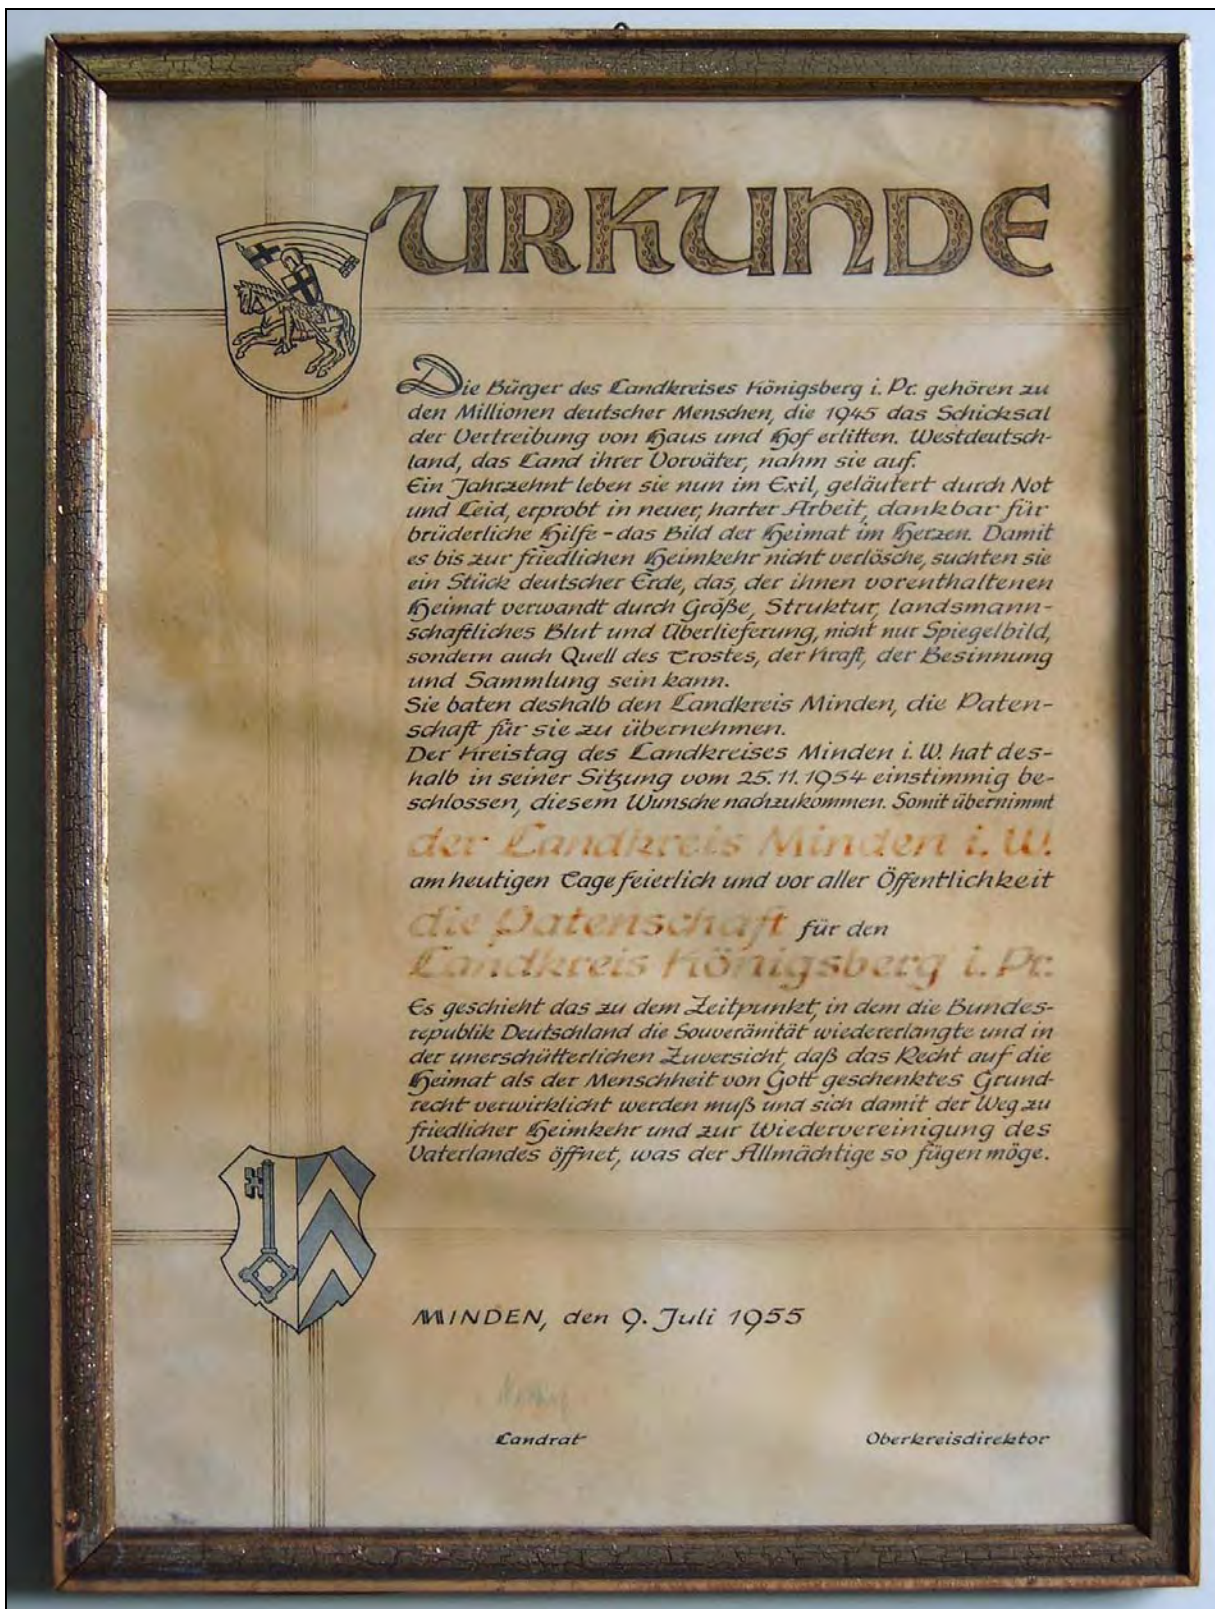 URKUNDE
Die Bürger des Landkreises Königsberg i. Pr. gehören zu
den Millionen deutscher Menschen, die 1945 das Schicksal
der Vertreibung von Haus und Hof erlitten. Westdeutsch-
land, das Land ihrer Vorväter, nahm sie auf.
Ein Jahrzehnt leben sie nun im Exil, geläutert durch Not
und Leid, erprobt in neuer, harter Arbeit, dankbar für
brüderliche Hilfe - das Bild der Heimat im Herzen. Damit
es bis zur friedlichen Heimkehr nicht verlösche, suchten sie
ein Stück deutscher Erde, das, der ihnen vorenthaltenen
Heimat verwandt durch Größe, Struktur, landsmann-
schaftliches Blut und Überlieferung, nicht nur Spiegelbild,
sondern auch Quell des Trostes, der Kraft, der Besinnung
und Sammlung sein kann.
Sie baten deshalb den Landkreis Minden, die Paten-
schaft für sie zu übernehmen.
Der Kreistag des Landkreises Minden i. W. hat des-
halb in seiner Sitzung vom 25. 11. 1954 einstimmig be-
schlossen, diesem Wunsche nachzukommen. Somit übernimmt
der Landkreis Minden i. W.
am heutigen Tage feierlich und vor aller Öffentlichkeit
die Patenschaft für den
Landkreis Königsberg i. Pr.
Es geschieht das zu dem Zeitpunkt, in dem die Bundes-
republik Deutschland die Souveränität wiedererlangte und in
der unerschütterlichen Zuversicht, daß das Recht auf die
Heimat als der Menschheit von Gott geschenktes Grund-
recht verwirklicht werden muß und sich damit der Weg zu
friedlicher Heimkehr und zur Wiedervereinigung des
Vaterlandes öffnet, was der Allmächtige so fügen möge.
MINDEN, den 9. Juli 1955
Landrat
Oberkreisdirektor